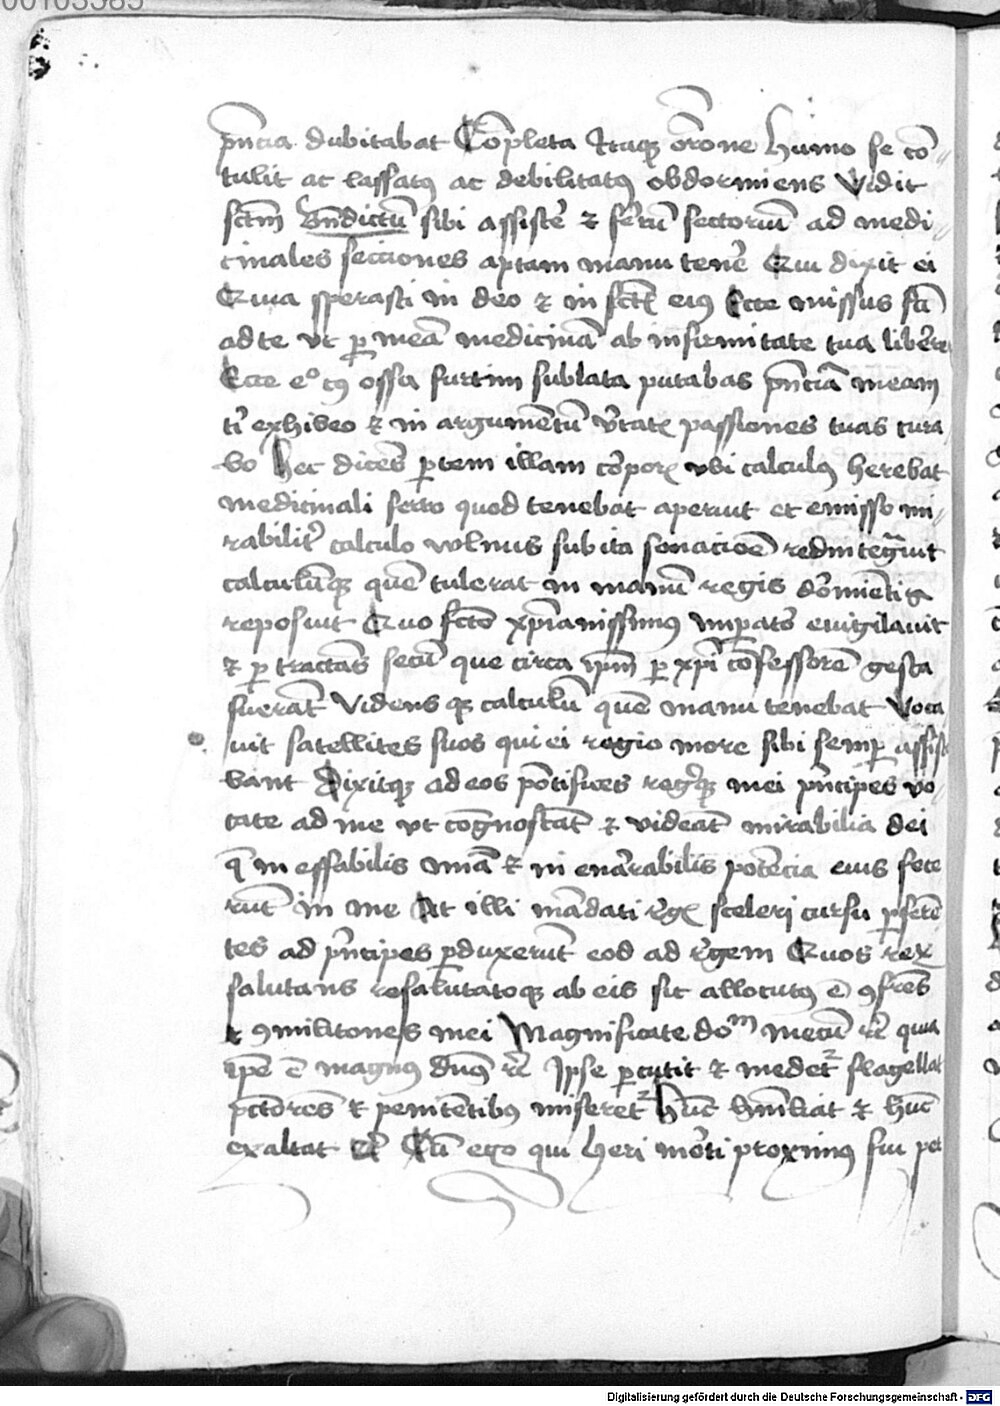 00103385
pn̄cia dubitabat Cōpleta Itaqȝ orōne humo se cō
tulit ac lassatꝰ ac debilitatꝰ obdormiens Vidit
sctm̄ bn̄dictū sibi assistē ⁊ ferrū sectoriū ad medi
cinales secciones aptam manu tenē Qui dixit ei
Quia sperasti in deo ⁊ in sctꝭ eiꝰ Ecce missus sū
ad te vt ꝑ meā medicinā ab infirmitate tua liberē
Ecce eº cꝰ ossa furtim sublata putabas pn̄ciā meam
ti exhibeo ⁊ in argumētū v̄tatꝭ passiones tuas cura
bo Hec dicēs ꝑtem illam corporꝭ vbi calculꝰ herebat
medicinali ferro quod tenebat aperuit et emisso mi
rabilit̄ calculo vulnus subita sonacioē redintegrauit
calculūqȝ quē tulerat in manū regis dormiētis
reposuit Quo fcto xp̄ianissimus imꝑator euigilauit
⁊ ꝑ tractās secū que circa ip̄m ꝑ xp̄i cōfessorē gesta
fuerāt Vidensqȝ calculū quē manu tenebat Voca
uit satellites suos qui ei regio more sibi semꝑ assiste
bant Dixitqȝ ad eos pōtifices regȝqȝ mei pn̄cipes vo
cate ad me vt cognoscāt ⁊ videāt mirabilia dei
q̄ in effabilis mīa ⁊ in enarrabilis potēcia eius fece
rūt in me At illi mādati rgꝭ sceleri cursu ꝑferē
tes ad pn̄cipes ꝑduxerūt eod ad rgem Quos rex
salutans resalutatoqȝ ab eis sic allocutꝰ ē ꝯfrēs
⁊ ꝯmilitones mei Magnificate doᵐ mecū ⁊c̄ quia
ip̄e ē magnꝰ dn̄s ⁊c̄ Ipse ꝑcutit ⁊ medet̄ flagellat
pctōres ⁊ penitētibꝰ miseret̄ Hūc humiliat ⁊ hūc
exaltat ⁊c̄ Cū ego qui heri morti proximꝰ fui pet
Digitalisierung gefördert durch die Deutsche Forschungsgemeinschaft - DFG